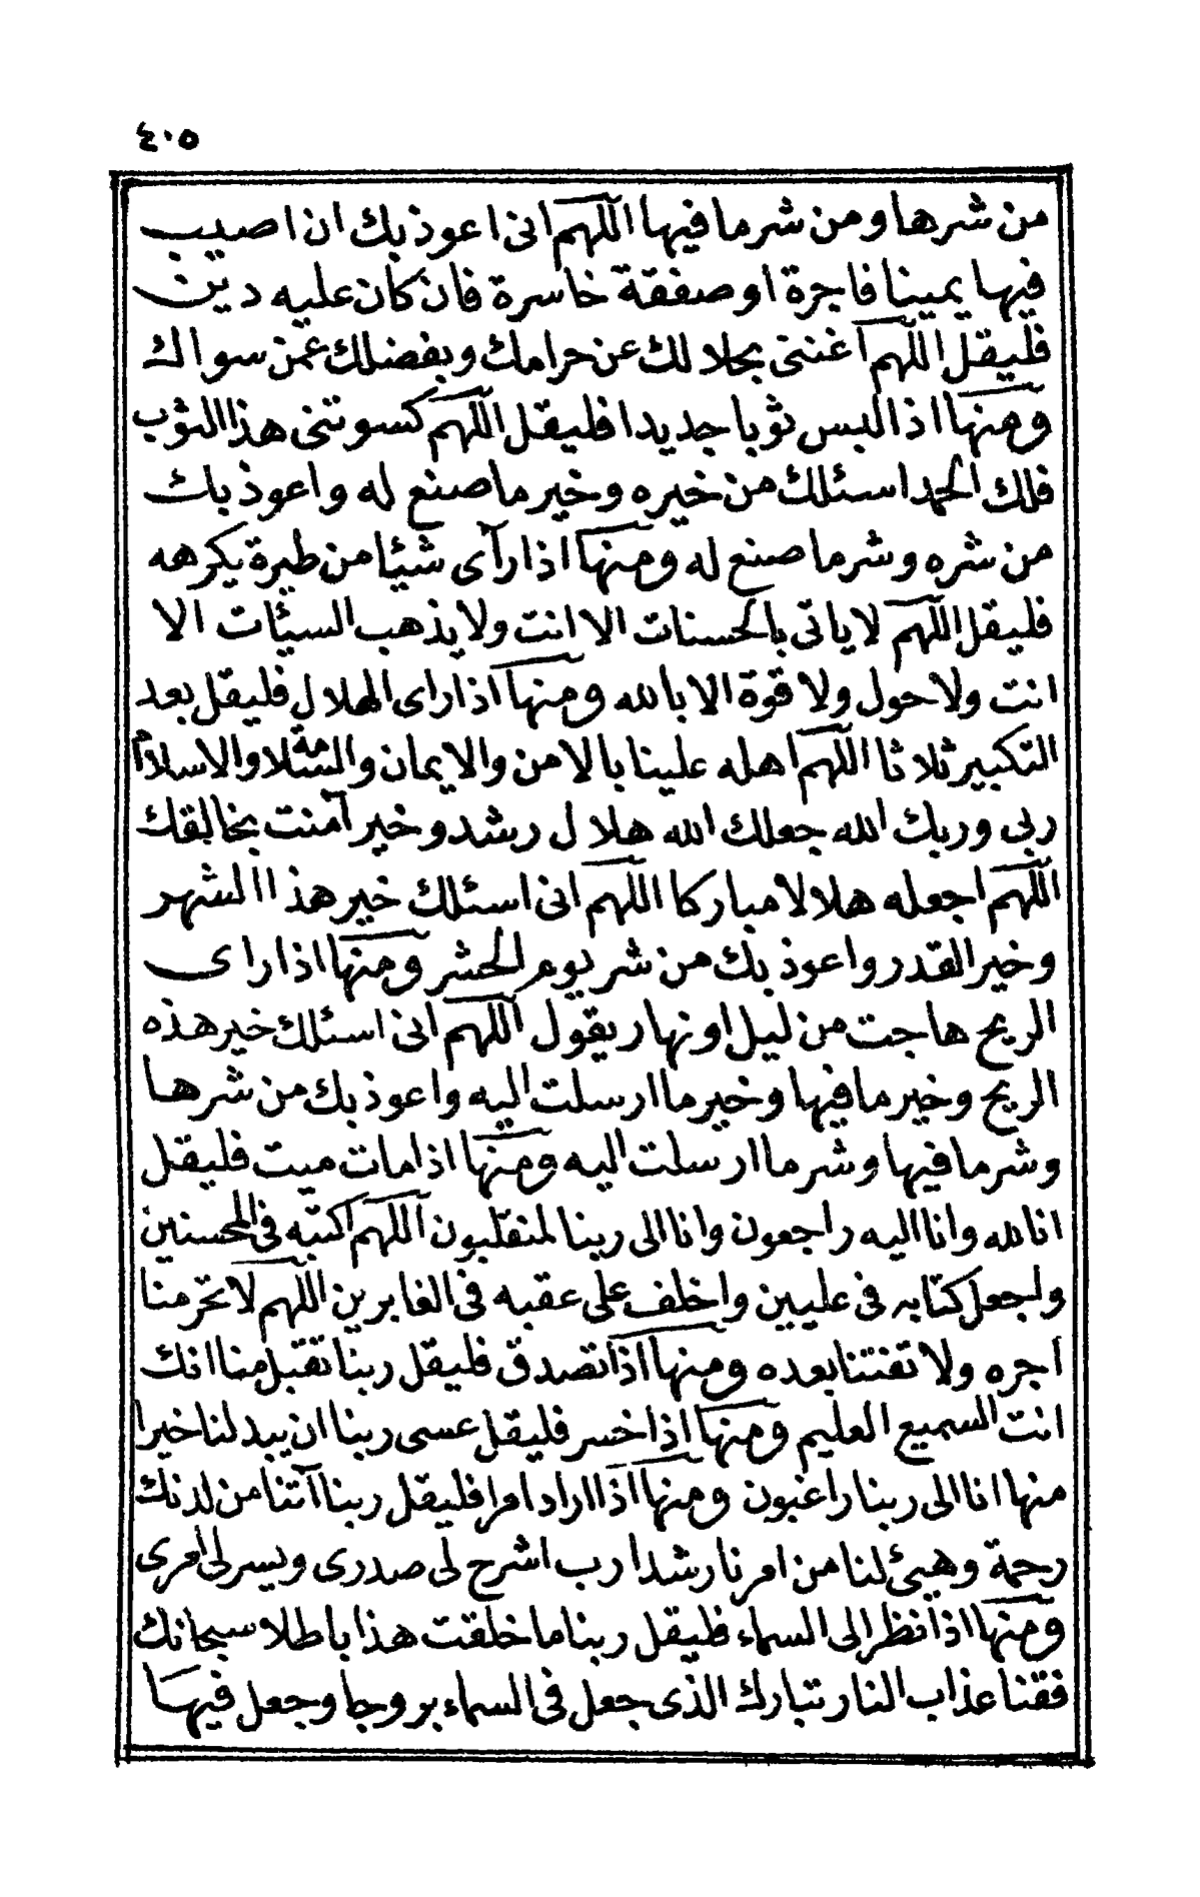 ٤٠٥
من شرها ومن شر ما فيها اللهم انى اعوذ بك ان اصيب
فيها يمينا فاجرة او صفقة خاسرة فان كان عليه دين
فليقل اللهم اغننى بحلالك عن حرامك وبفضلك عمن سواك
ومنها اذا لبس ثوبا جديدا فليقل اللهم كسوتنى هذا الثوب
فلك الحمد اسئلك من خيره وخير ما صنع له واعوذ بك
من شره وشر ما صنع له ومنها اذا رآى شيئا من طيرة يكرهه
فليقل اللهم لا ياتى بالحسنات الا انت ولا يذهب السيئات الا
انت ولا حول ولا قوة الا بالله ومنها اذا راى الهلال فليقل بعد
التكبير ثلاثا اللهم اهله علينا بالامن والايمان والسلامة والاسلام
ربى وربك الله جعلك الله هلال رشد وخير آمنت بخالقك
اللهم اجعله هلالا مباركا اللهم انى اسئلك خير هذا الشهر
وخير القدر واعوذ بك من شر يوم الحشر ومنها اذا راى
الريح هاجت من ليل او نهار يقول اللهم انى اسئلك خير هذه
الريح وخير ما فيها وخير ما ارسلت اليه واعوذ بك من شرها
وشر ما فيها وشر ما ارسلت اليه ومنها اذا مات ميت فليقل
انا لله وانا اليه راجعون وانا الى ربنا لمنقلبون اللهم اكتبه فى المحسنين
واجعل كتابه فى عليين واخلف على عقبه فى الغابرين اللهم لا تحرمنا
اجره ولا تفتنا بعده ومنها اذا تصدق فليقل ربنا تقبل منا انك
انت السميع العليم ومنها اذا خسر فليقل عسى ربنا ان يبدلنا خيرا
منها انا الى ربنا راغبون ومنها اذا اراد امرا فليقل ربنا آتنا من لدنك
رحمة وهيئ لنا من امرنا رشدا رب اشرح لى صدرى ويسر لى امرى
ومنها اذا نظر الى السماء فليقل ربنا ما خلقت هذا باطلا سبحانك
فقنا عذاب النار تبارك الذى جعل فى السماء بروجا وجعل فيها